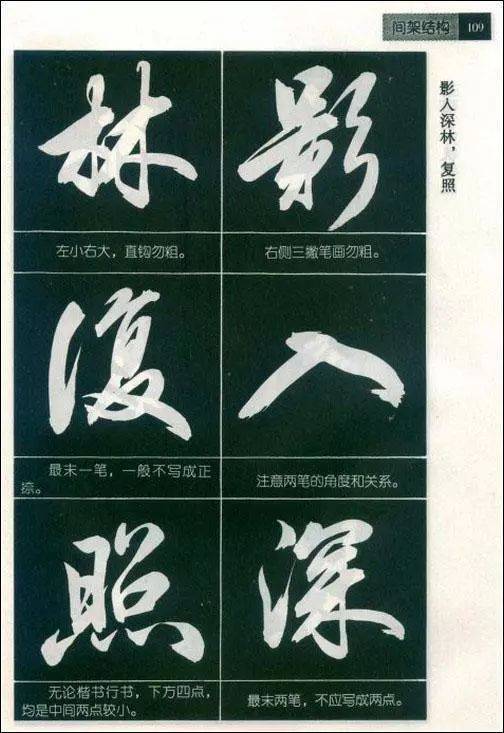 间架结构 109
影入深林，复照
影
右侧三撇笔画勿粗。
入
注意两笔的角度和关系。
深
最末两笔，不应写成两点。
林
左小右大，直钩勿粗。
復
最末一笔，一般不写成正
捺。
照
无论楷书行书，下方四点，
均是中间两点较小。